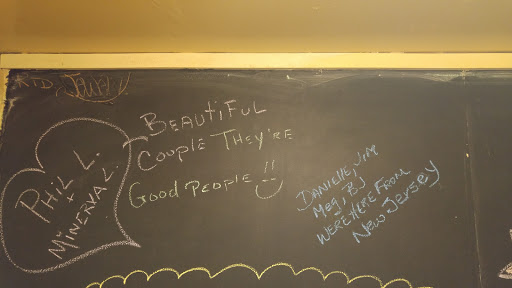 PHIL L.
+
MINERVA L.
BEAUTIFUL
COUPLE THEY'RE
GOOD PEOPLE!!
DANIELLE, JIM
MEG, BJ
WERE HERE FROM
NEW JERSEY